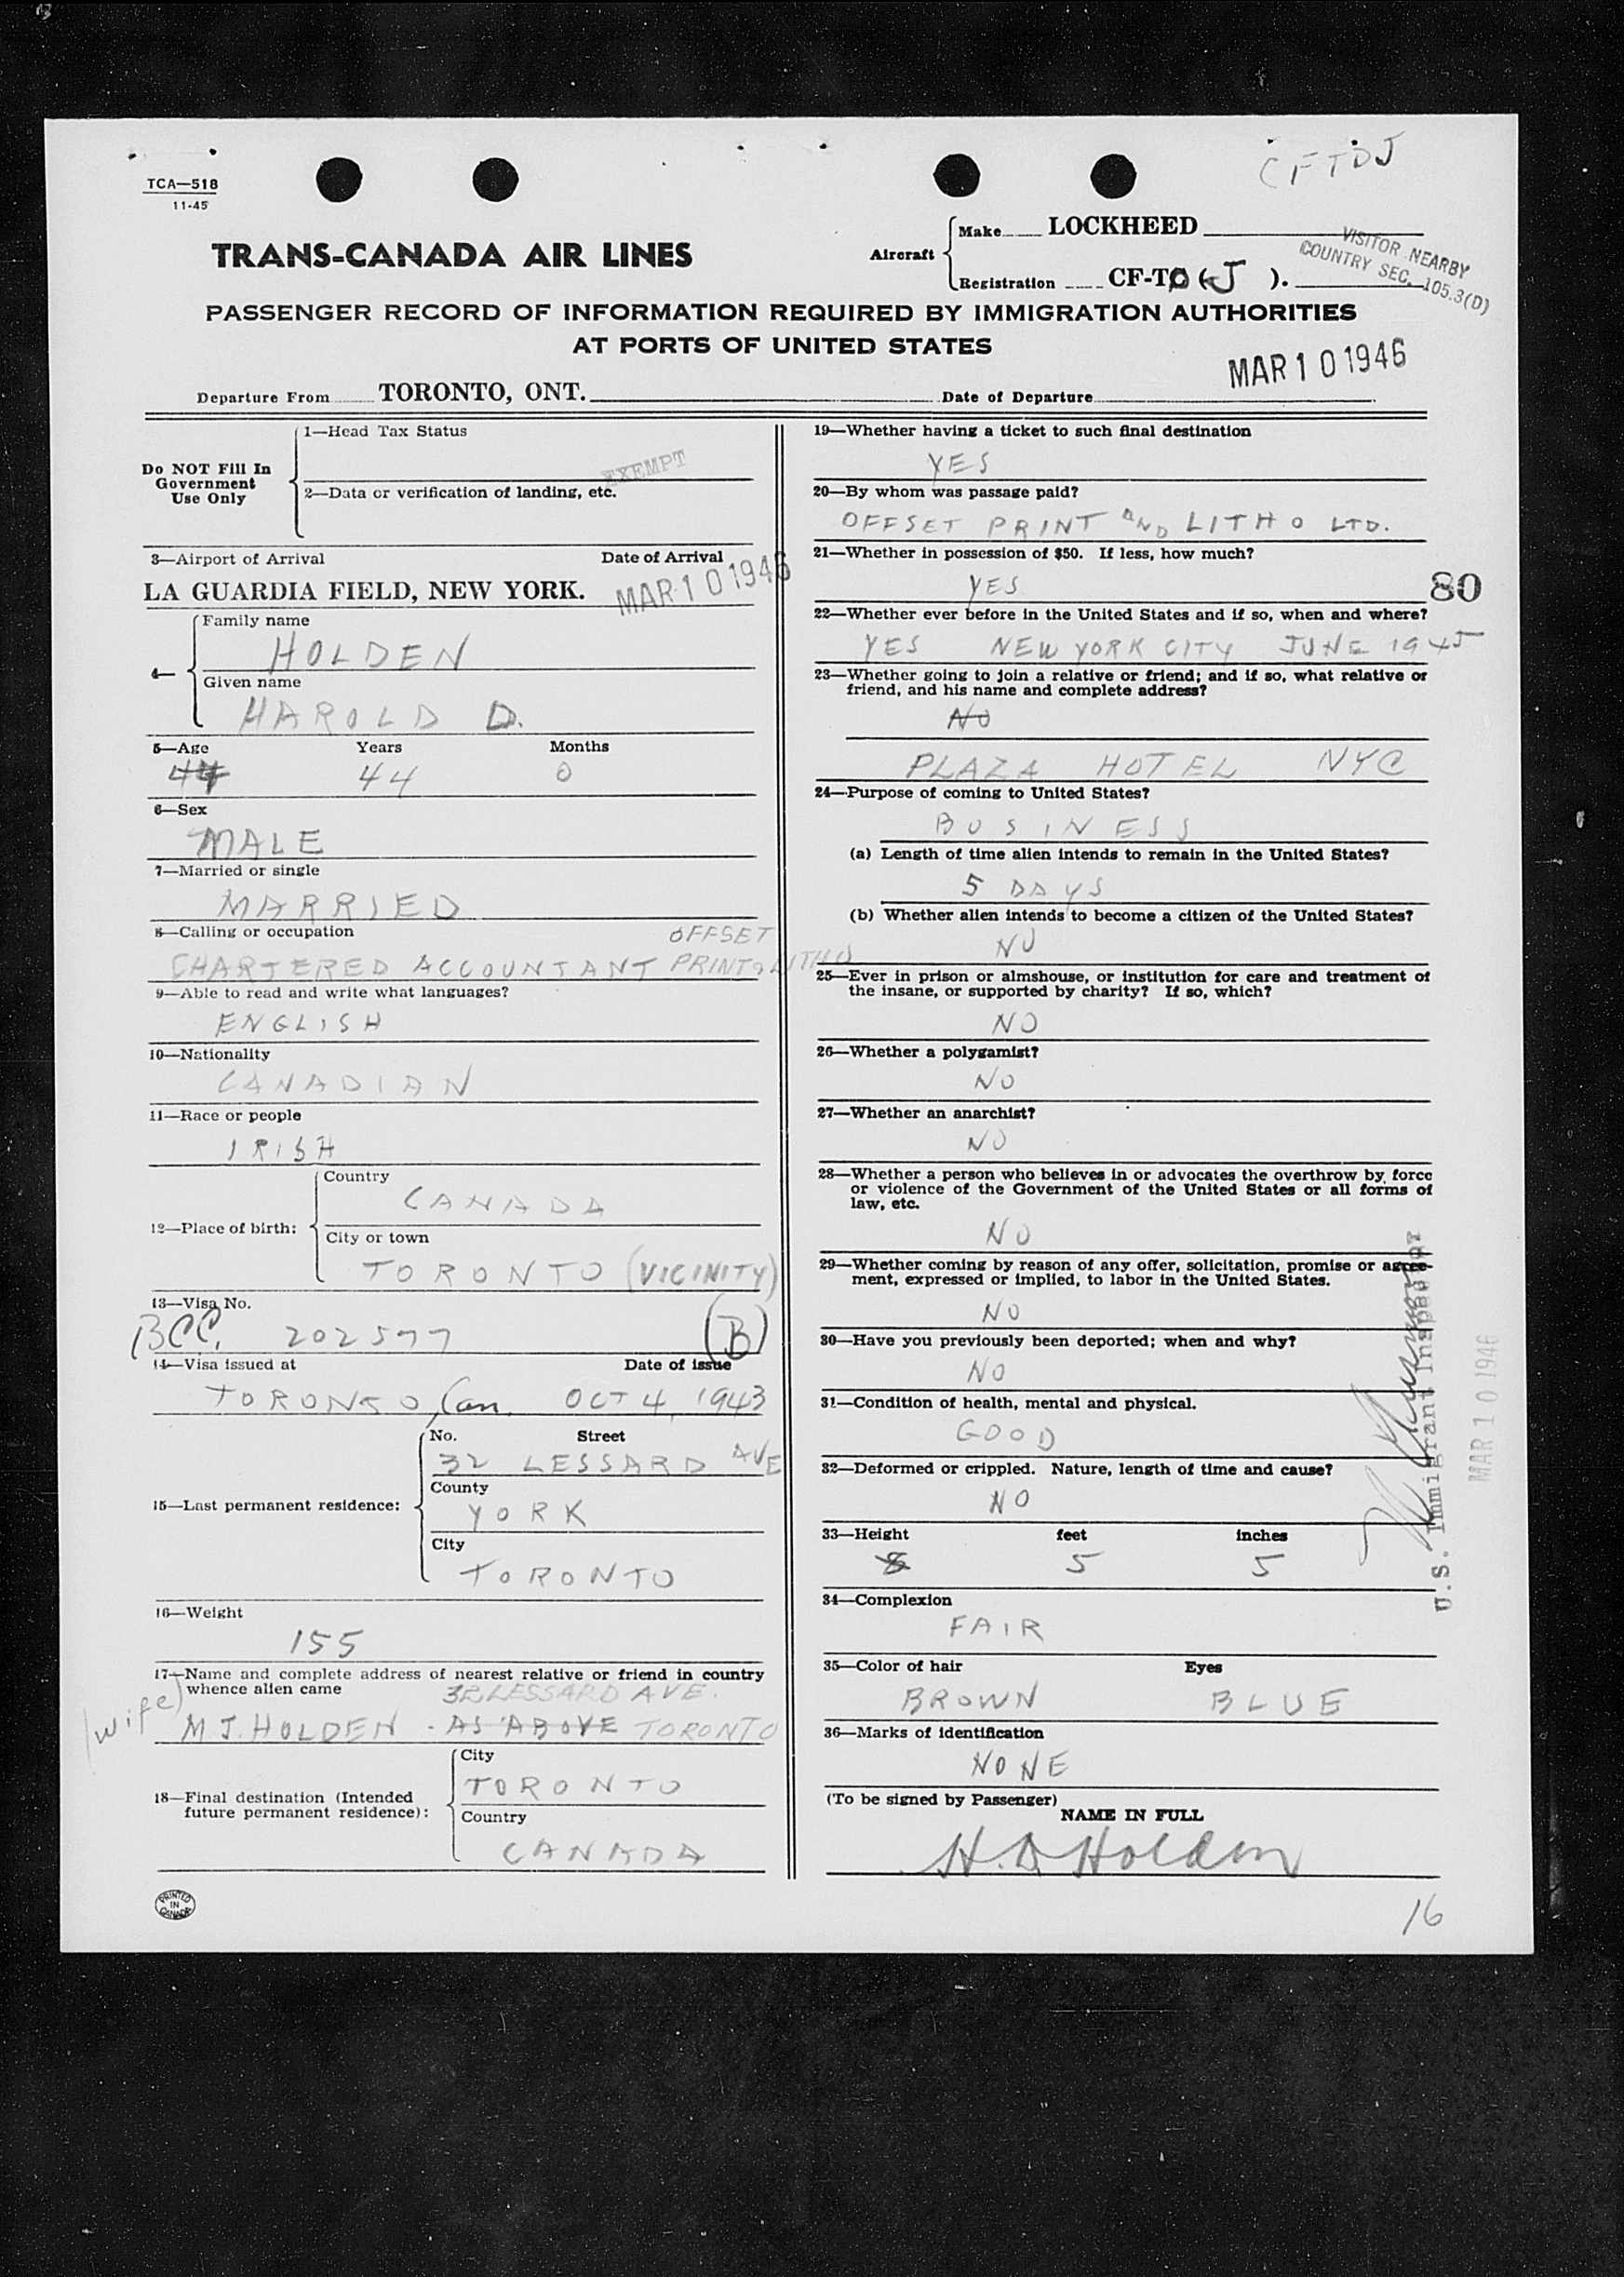 CFTDJ
TCA—518
11-45
TRANS-CANADA AIR LINES
Aircraft
Make LOCKHEED
Registration CF-TD (J ).
VISITOR NEARBY
COUNTRY SEC. 105.3(D)
PASSENGER RECORD OF INFORMATION REQUIRED BY IMMIGRATION AUTHORITIES
AT PORTS OF UNITED STATES
Departure From TORONTO, ONT.
Date of Departure MAR 10 1946
Do NOT Fill In
Government
Use Only
1—Head Tax Status
EXEMPT
2—Data or verification of landing, etc.
3—Airport of Arrival Date of Arrival
LA GUARDIA FIELD, NEW YORK. MAR 10 1946
4—
Family name
HOLDEN
Given name
HAROLD D.
5—Age Years Months
44 44 0
6—Sex
MALE
7—Married or single
MARRIED
8—Calling or occupation OFFSET
CHARTERED ACCOUNTANT PRINT & LITHO
9—Able to read and write what languages?
ENGLISH
10—Nationality
CANADIAN
11—Race or people
IRISH
12—Place of birth:
Country
CANADA
City or town
TORONTO (VICINITY)
13—Visa No.
BCC. 202577 (B)
14—Visa issued at Date of issue
TORONTO, Can. OCT 4, 1943
15—Last permanent residence:
No. Street
32 LESSARD AVE
County
YORK
City
TORONTO
16—Weight
155
17—Name and complete address of nearest relative or friend in country
whence alien came 32 LESSARD AVE.
(wife) M.J. HOLDEN - AS ABOVE TORONTO
18—Final destination (Intended
future permanent residence):
City
TORONTO
Country
CANADA
PRINTED
IN
CANADA
19—Whether having a ticket to such final destination
YES
20—By whom was passage paid?
OFFSET PRINT AND LITHO LTD.
21—Whether in possession of $50. If less, how much?
YES 80
22—Whether ever before in the United States and if so, when and where?
YES NEW YORK CITY JUNE 1945
23—Whether going to join a relative or friend; and if so, what relative or
friend, and his name and complete address?
NO
PLAZA HOTEL NYC
24—Purpose of coming to United States?
BUSINESS
(a) Length of time alien intends to remain in the United States?
5 DAYS
(b) Whether alien intends to become a citizen of the United States?
NO
25—Ever in prison or almshouse, or institution for care and treatment of
the insane, or supported by charity? If so, which?
NO
26—Whether a polygamist?
NO
27—Whether an anarchist?
NO
28—Whether a person who believes in or advocates the overthrow by force
or violence of the Government of the United States or all forms of
law, etc.
NO
29—Whether coming by reason of any offer, solicitation, promise or agree-
ment, expressed or implied, to labor in the United States.
NO
30—Have you previously been deported; when and why?
NO
31—Condition of health, mental and physical.
GOOD
32—Deformed or crippled. Nature, length of time and cause?
NO
33—Height feet inches
5 5
34—Complexion
FAIR
35—Color of hair Eyes
BROWN BLUE
36—Marks of identification
NONE
(To be signed by Passenger)
NAME IN FULL
H. D. Holden
U.S. Immigrant Inspector
MAR 10 1946
16